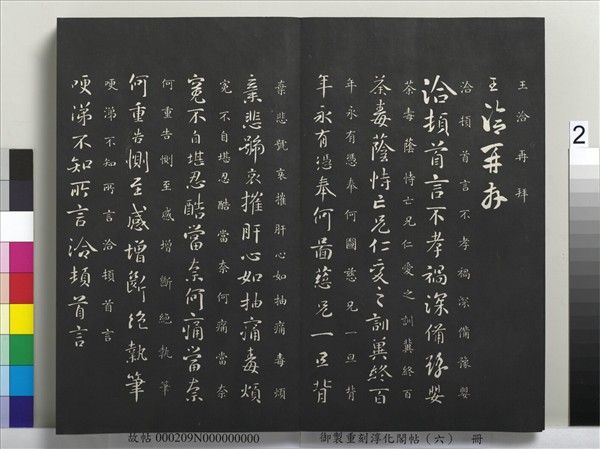 王洽再拜
王洽再拜
洽頓首言不孝禍深備豫嬰
洽頓首言不孝禍深備豫嬰
荼毒蔭恃亡兄仁愛之訓冀終百
荼毒蔭恃亡兄仁愛之訓冀終百
年永有憑奉何圖慈兄一旦背
年永有憑奉何圖慈兄一旦背
棄悲號哀摧肝心如抽痛毒煩
棄悲號哀摧肝心如抽痛毒煩
冤不自堪忍酷當奈何痛當奈
冤不自堪忍酷當奈何痛當奈
何重告惻至感增斷絕執筆
何重告惻至感增斷絕執筆
哽涕不知所言洽頓首言
哽涕不知所言洽頓首言
2
故帖 000209N000000000
御製重刻淳化閣帖（六） 冊